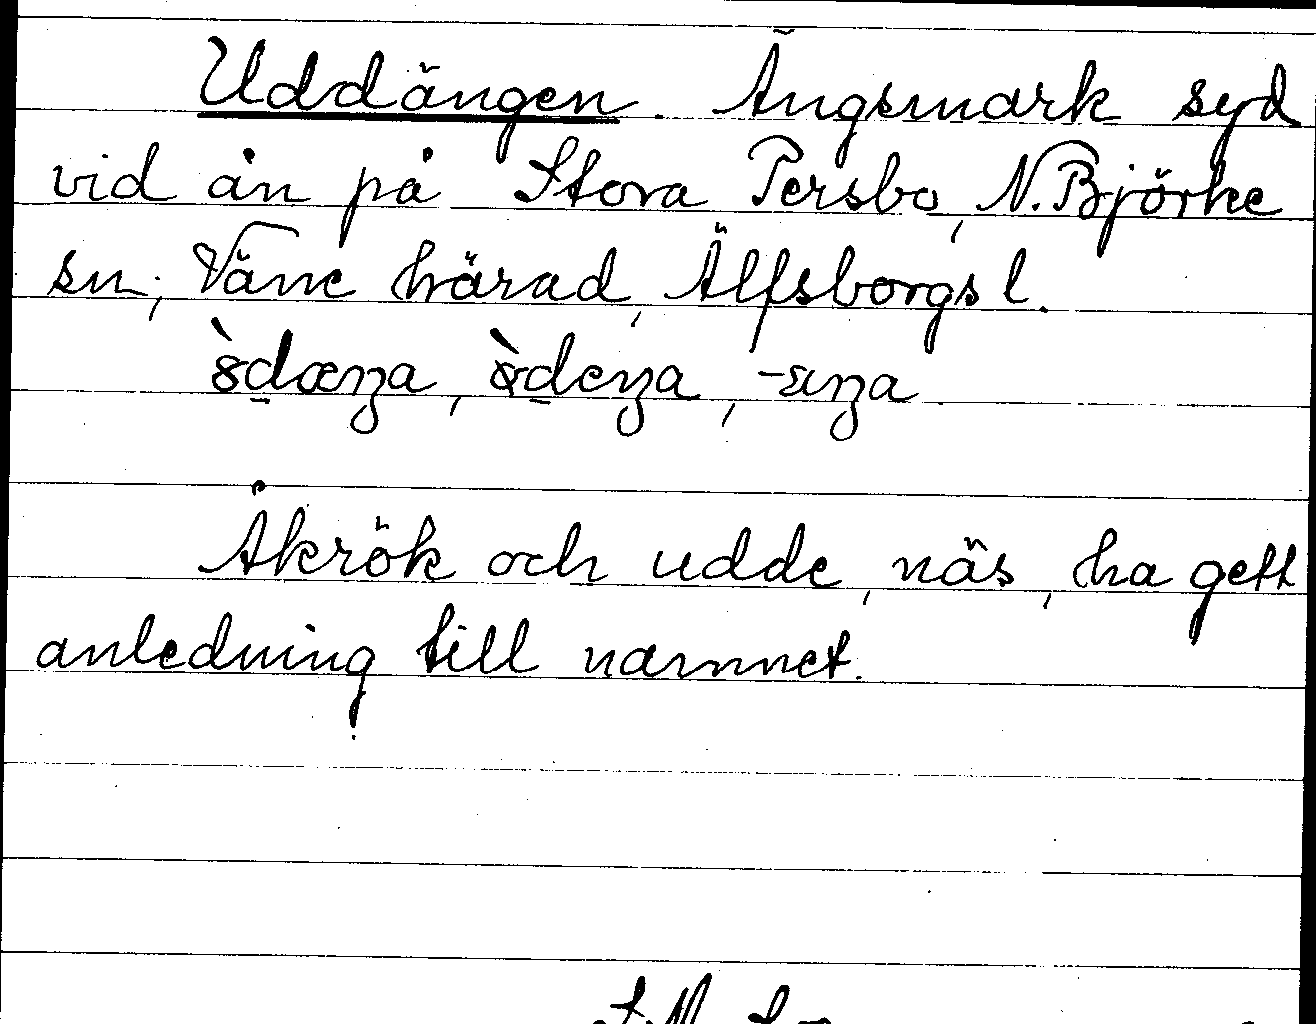 Uddängen. Ängsmark syd
vid ån på Stora Persbo, N. Björke
sn, Väne härad, Älfsborgs l.
Åkrök och udde, näs, ha gett
anledning till namnet.